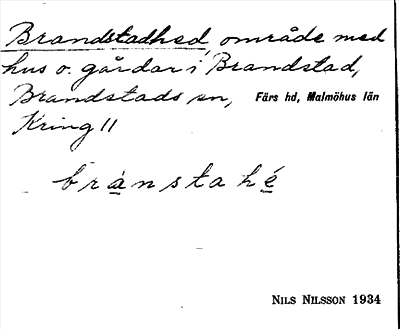 Brandstadhed, område med
hus o. gårdar i Brandstad,
Brandstads sn, Färs hd, Malmöhus län
Kring 11
bránstahé
NILS NILSSON 1934